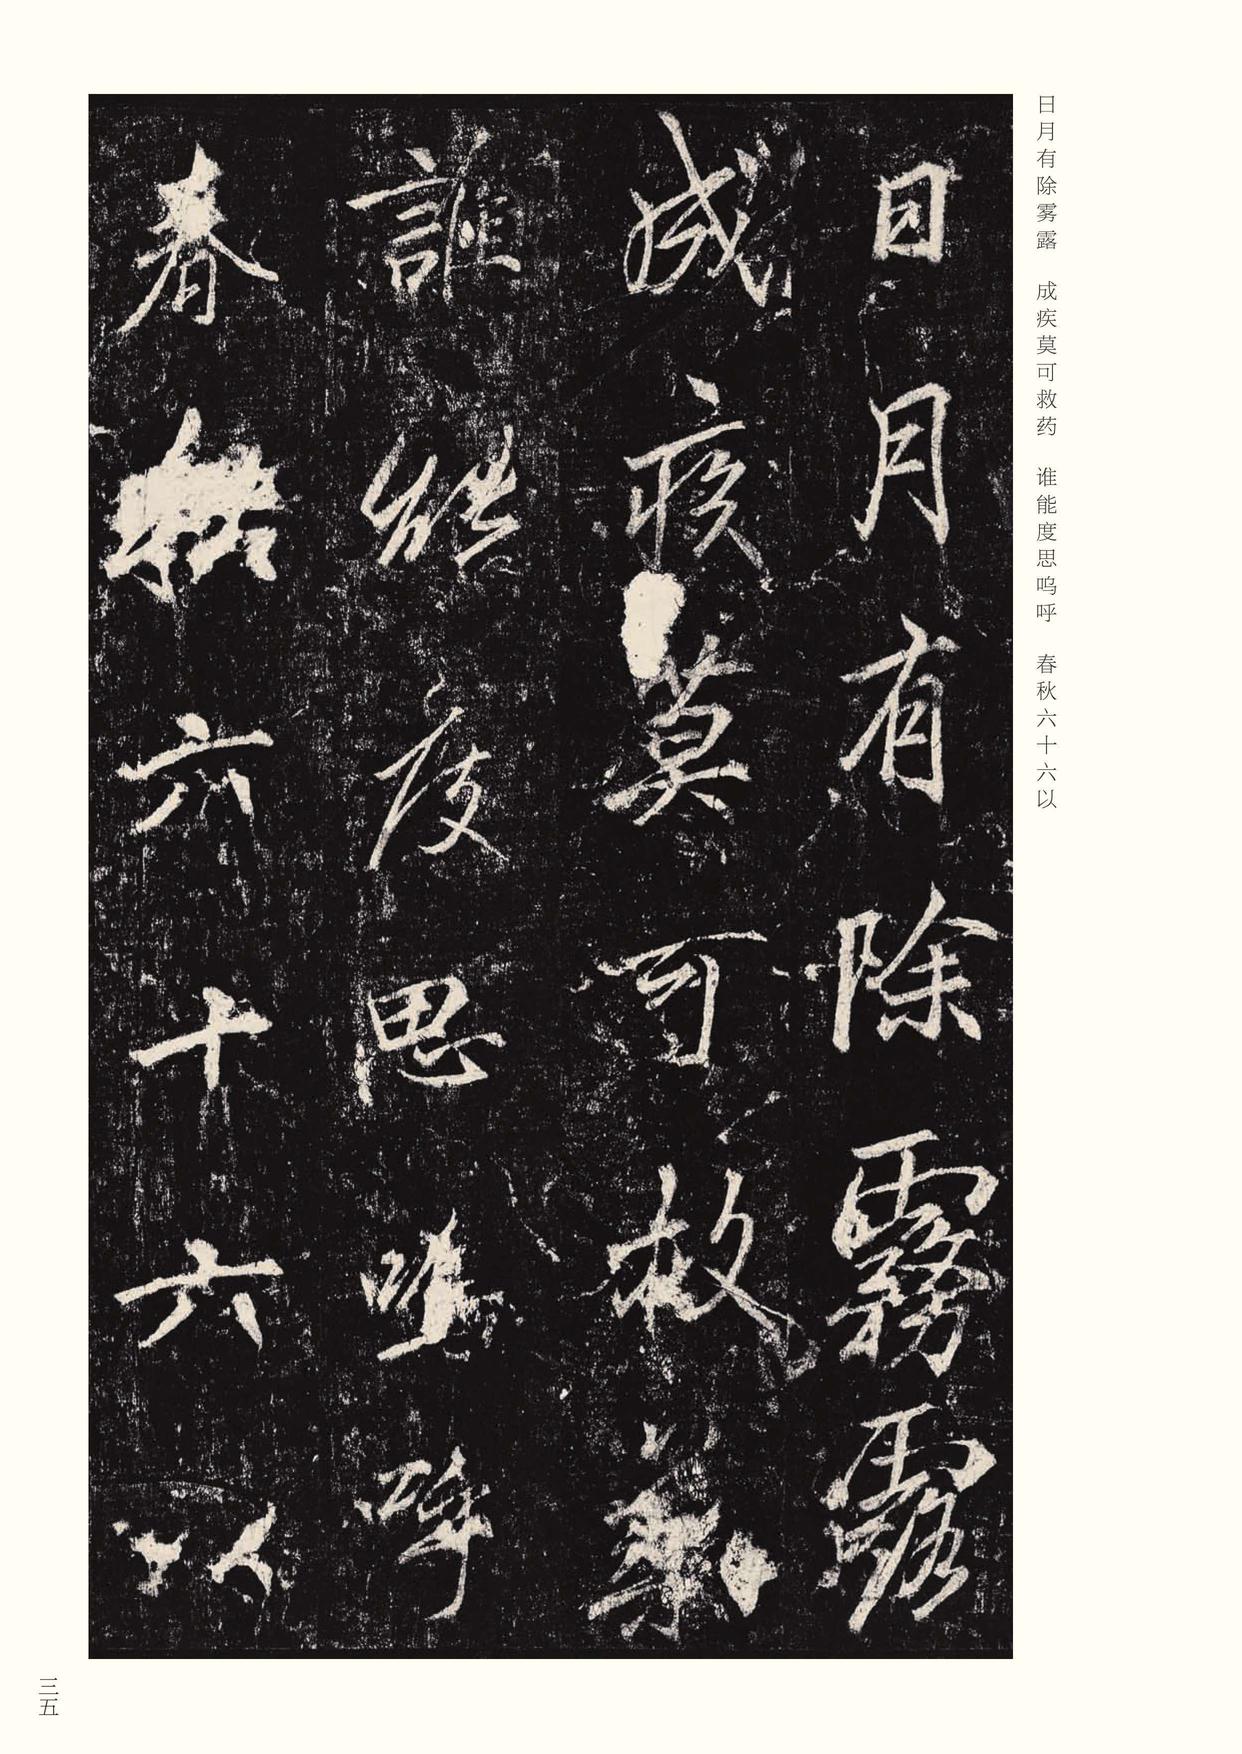 日月有除雾露　成疾莫可救药　谁能度思呜呼　春秋六十六以
日月有除霧露
成疾莫可救藥
誰能度思嗚呼
春秋六十六以
三五